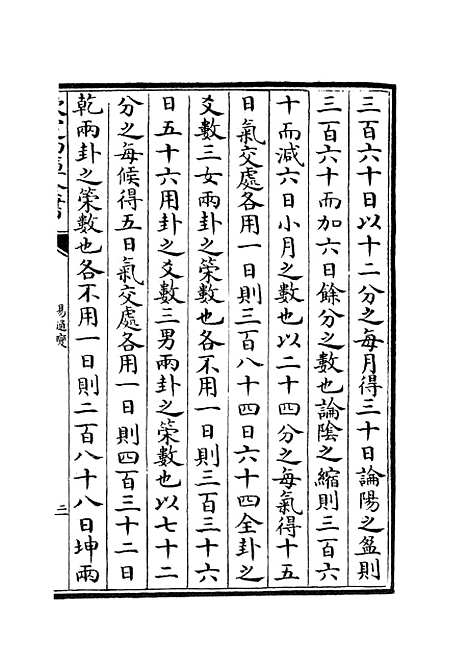 三百六十日以十二分之每月得三十日論陽之盈則
三百六十而加六日餘分之數也論陰之縮則三百六
十而減六日小月之數也以二十四分之每氣得十五
日氣交處各用一日則三百八十四日六十四全卦之
爻數三女兩卦之䇿數也各不用一日則三百三十六
日五十六用卦之爻數三男兩卦之䇿數也以七十二
分之每候得五日氣交處各用一日則四百三十二日
乾兩卦之䇿數也各不用一日則二百八十八日坤兩
易通變
二